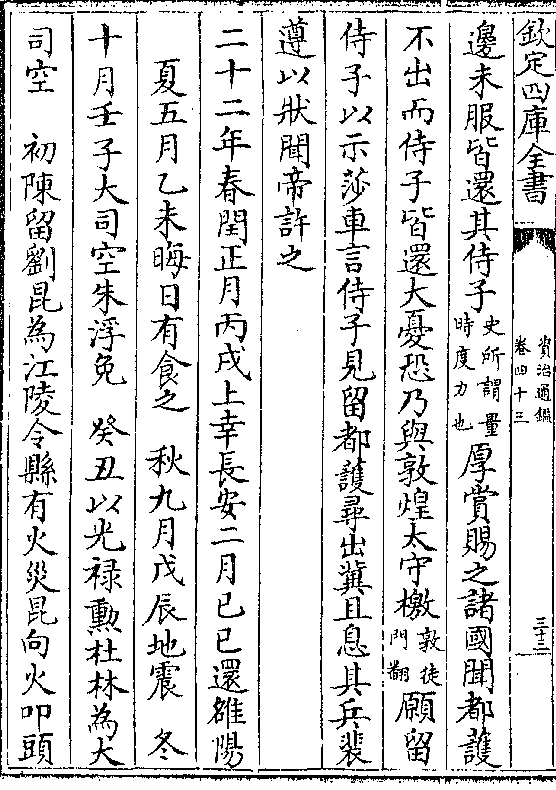 欽定四庫全書
資治通鑑
卷四十三
三十二
邊未服皆還其侍子史所謂量
時度力也厚賞賜之諸國聞都護
不出而侍子皆還大憂恐乃與敦煌太守檄敦徒
門翻願留
侍子以示莎車言侍子見留都護尋出冀且息其兵裴
遵以狀聞帝許之
二十二年春閏正月丙戌上幸長安二月己巳還雒陽
夏五月乙未晦日有食之 秋九月戊辰地震 冬
十月壬子大司空朱浮免 癸丑以光禄勲杜林為大
司空 初陳留劉昆為江陵令縣有火災昆向火叩頭